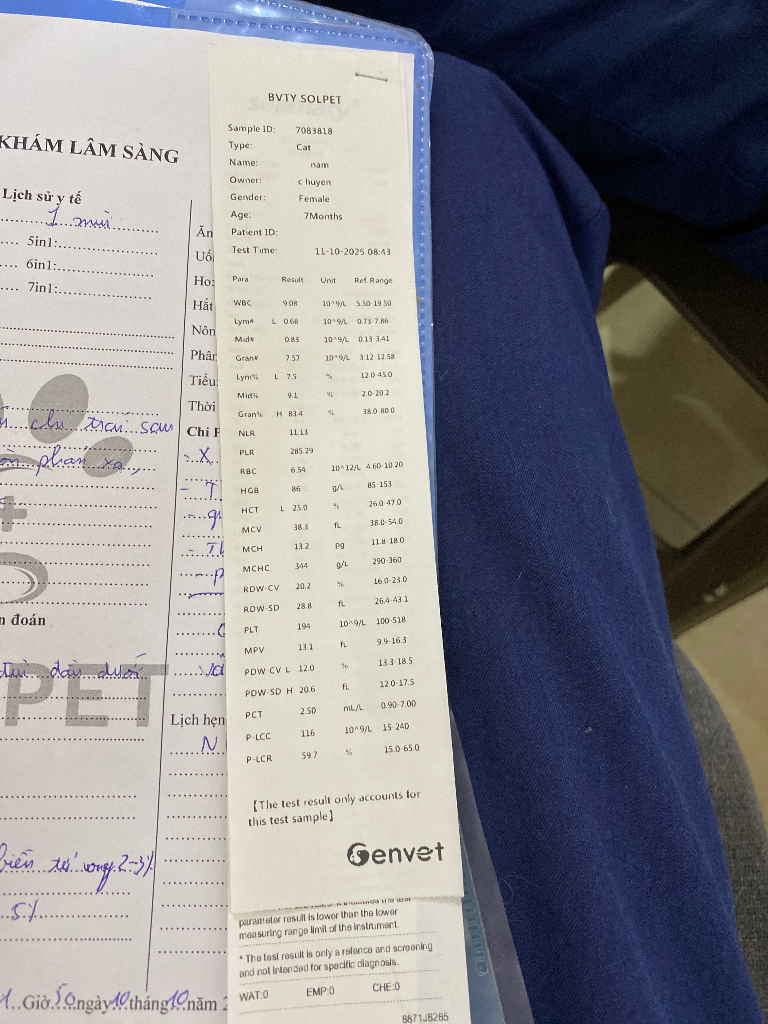 KHÁM LÂM SÀNG
Lịch sử y tế
1 mũi
5in1:
6in1:
7in1:
Ho:
Hắt
Nôn
Phân
Tiểu:
Thời
chi trai sau
phản xạ,
X
T
đoán
PET
Lịch hẹn
N
tử vong 2-3%
5%
Giờ 50 ngày 10 tháng 10 năm 2
BVTY SOLPET
Sample ID: 7083818
Type: Cat
Name: nam
Owner: c huyen
Gender: Female
Age: 7Months
Patient ID:
Test Time: 11-10-2025 08:43
Para Result Unit Ref. Range
WBC 9.08 10^9/L 5.50-19.50
Lym# L 0.68 10^9/L 0.73-7.86
Mid# 0.83 10^9/L 0.13-3.41
Gran# 7.57 10^9/L 3.12-12.58
Lym% L 7.5 % 12.0-45.0
Mid% 9.1 % 2.0-20.2
Gran% H 83.4 % 38.0-80.0
NLR 11.13
PLR 285.29
RBC 6.54 10^12/L 4.60-10.20
HGB 86 g/L 85-153
HCT L 25.0 % 26.0-47.0
MCV 38.3 fL 38.0-54.0
MCH 13.2 pg 11.8-18.0
MCHC 344 g/L 290-360
RDW-CV 20.2 % 16.0-23.0
RDW-SD 28.8 fL 26.4-43.1
PLT 194 10^9/L 100-518
MPV 13.1 fL 9.9-16.3
PDW-CV L 12.0 % 13.3-18.5
PDW-SD H 20.6 fL 12.0-17.5
PCT 2.50 mL/L 0.90-7.00
P-LCC 116 10^9/L 15-240
P-LCR 59.7 % 15.0-65.0
【The test result only accounts for
this test sample】
Genvet
parameter result is lower than the lower
measuring range limit of the instrument.
* The test result is only a refence and screening
and not intended for specific diagnosis.
WAT:0 EMP:0 CHE:0
8671J8285